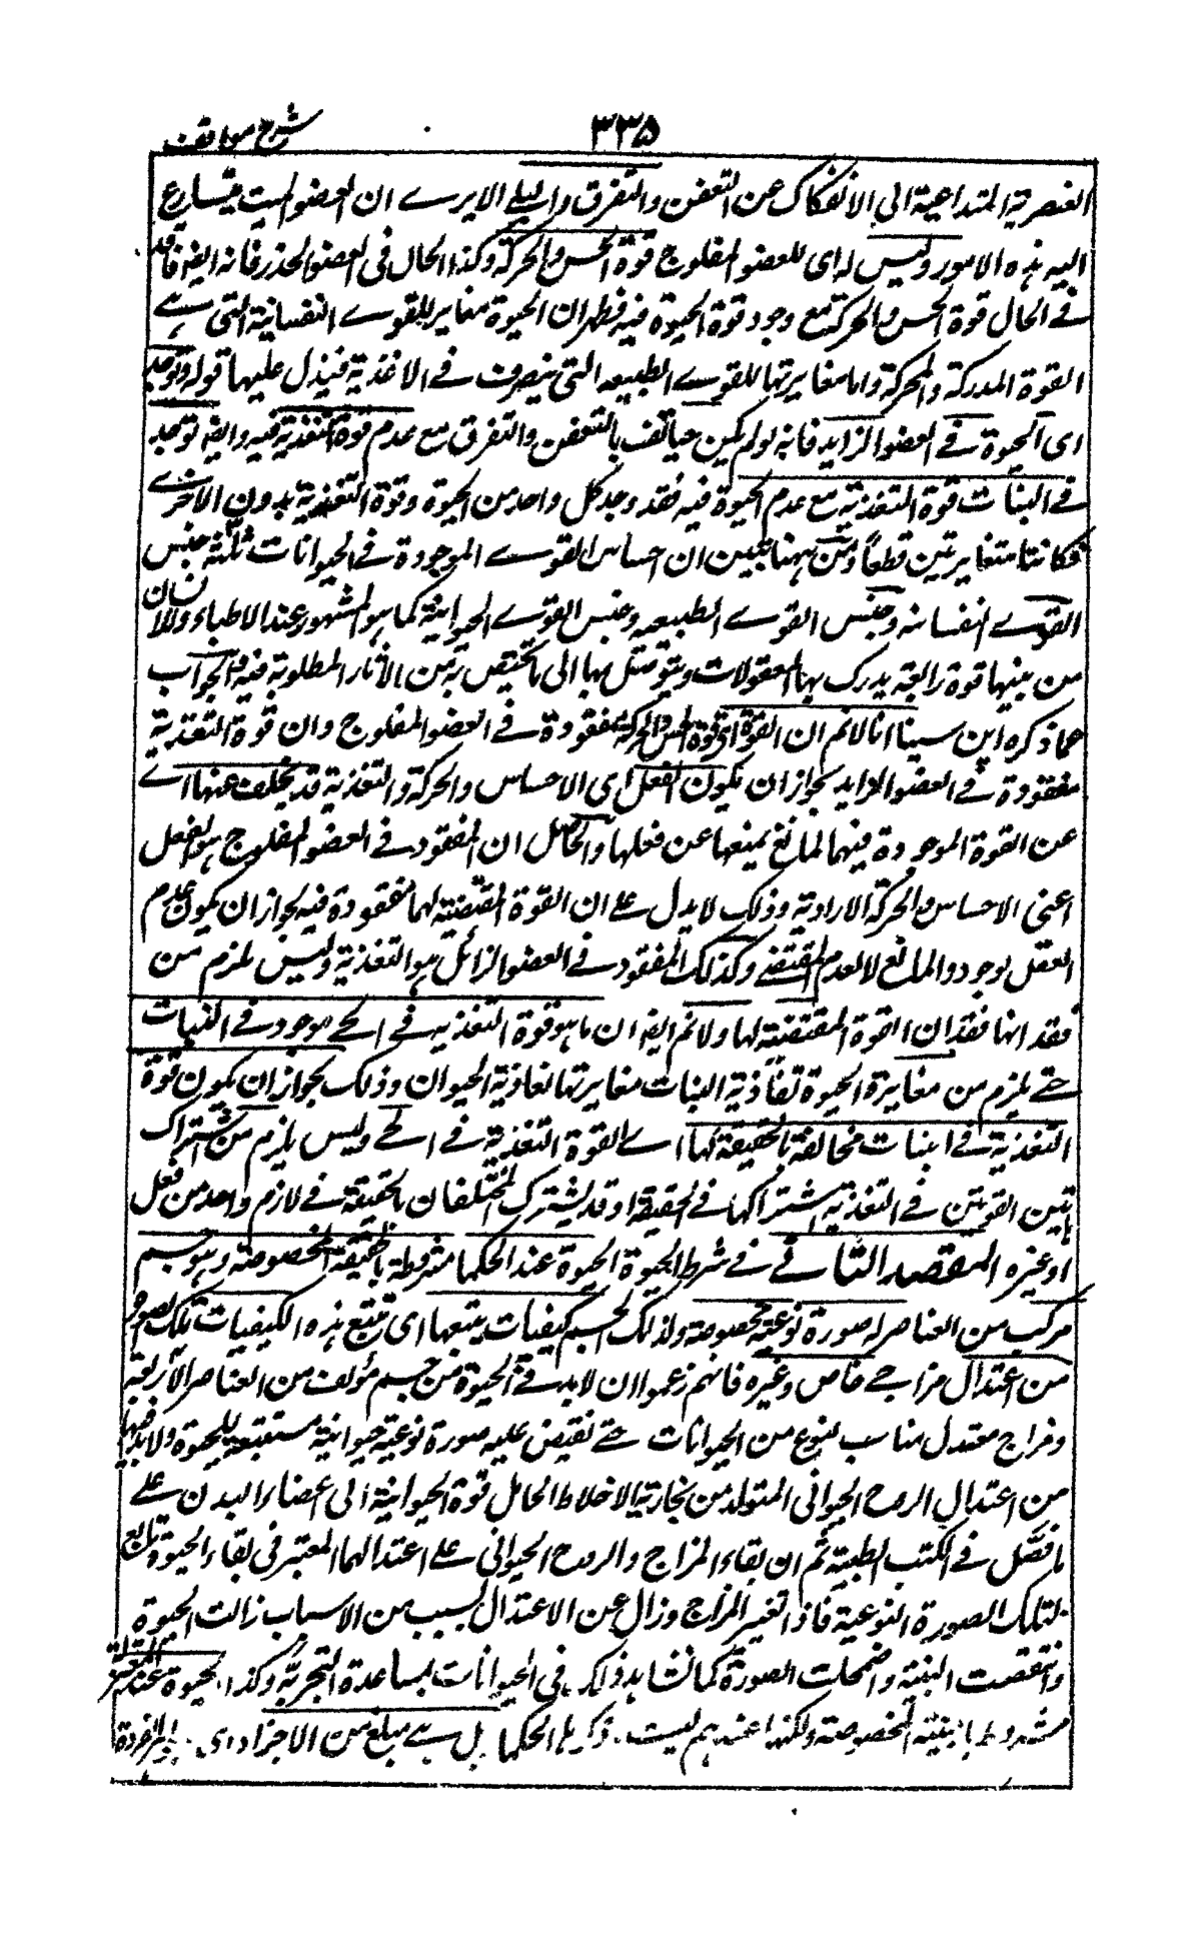 شرح مواقف
۳۳۵
العنصرية المتداعية الى الانفكاك عن التعفن والتفرق والبلى الا يرى ان العضو الميت يتسارع
اليه هذه الامور وليس له اى للعضو المفلوج قوة الحس والحركة وكذا الحال فى العضو الخدر فانه ايضا فاقد
فى الحال قوة الحس والحركة مع وجود قوة الحيوة فيه فظهر ان الحيوة مغايرة للقوى النفسانية التى هى
القوة المدركة والمحركة واما مغايرتها للقوى الطبيعيه التى يتصرف فى الاغذية فيدل عليها قوله وتوجد
اى الحيوة فى العضو الزايد فانه لو لم يكن حيا تعف بالتعفن والتفرق مع عدم قوة التغذية فيه وايضا توجد
فى النبات قوة التغذية مع عدم الحيوة فيه فقد وجد كل واحد من الحيوة وقوة التغذية بدون الاخرى
فكانتا متغايرتين قطعاً ومن ههنا تبين ان اجناس القوى الموجودة فى الحيوانات ثلثة جنس
القوى النفسانيه وجنس القوى الطبيعيه وجنس القوى الحيوانية كما هو المشهور عند الاطباء وللانسان
من بينها قوة رابعة يدرك بها المعقولات ويتوصل بها الى ما يختص به من الآثار المطلوبة فيه والجواب
عما ذكره ابن سينا انا لانم ان القوة اى قوة الحس والحركة مفقودة فى العضو المفلوج وان قوة التغذية
مفقودة فى العضو الزايد لجواز ان يكون الفعل اى الاحساس والحركة والتغذية قد يخلف عنها اى
عن القوة الموجودة فيهما لمانع يمنعها عن فعلها والحاصل ان المفقود فى العضو المفلوج هو الفعل
اعنى الاحساس والحركة الارادية وذلك لا يدل على ان القوة المقتضية لهما مفقودة فيه لجواز ان يكون عدم
الفعل لوجود المانع لا لعدم المقتضى وكذلك المفقود فى العضو الزائل هو التغذية وليس يلزم من
فقدانها فقدان القوة المقتضية لها ولانم ايضا ان ما هو قوة التغذيه فى الحى موجود فى النبات
حتى يلزم من مغايرة الحيوة لغاذية النبات مغايرتها لغاذية الحيوان وذلك لجواز ان يكون قوة
التغذية فى النبات مخالفة بالحقيقة لها اى للقوة التغذية فى الحى وليس يلزم من اشتراك
هاتين القوتين فى التغذية اشتراكهما فى الحقيقة اذ قد يشترك المختلفان بالحقيقة فى لازم واحد من فعل
او غيره المقصد الثانى فى شرط الحيوة الحيوة عند الحكما مشروطة بالحقيقة المخصوصة وهو جسم
مركب من العناصر له صورة نوعية مخصوصة ولذلك الجسم كيفيات يتبعها اى تتبع هذه الكيفيات تلك الصورة
من اعتدال مزاجى خاص وغيره فانهم زعموا ان لابد فى الحيوة من جسم مؤلف من العناصر الاربعة
ومزاج معتدل مناسب لنوع من الحيوانات حتى تفيض عليه صورة نوعية حيوانية مستتبعة للحيوة ولابد فيها
من اعتدال الروح الحيوانى المتولد من بخارية الاخلاط الحامل قوة الحيوانية الى اعضاء البدن على
ما فصل فى الكتب الطبية ثم ان بقاء المزاج والروح الحيوانى على اعتدالهما المعتبر فى بقاء الحيوة تابع
لتلك الصورة النوعية فاذا تغير المزاج وزال عن الاعتدال بسبب من الاسباب زالت الحيوة
وانتقضت البنية واضمحلت الصورة كما نشاهد ذلك فى الحيوانات بمساعدة التجربة وكذا الحيوة عند المعتزلة
مشروطة بالبنية المخصوصة ولكنها عندهم ليست ذكرها الحكما بل هى مبلغ من الاجزاء اى الجواهر الفردة